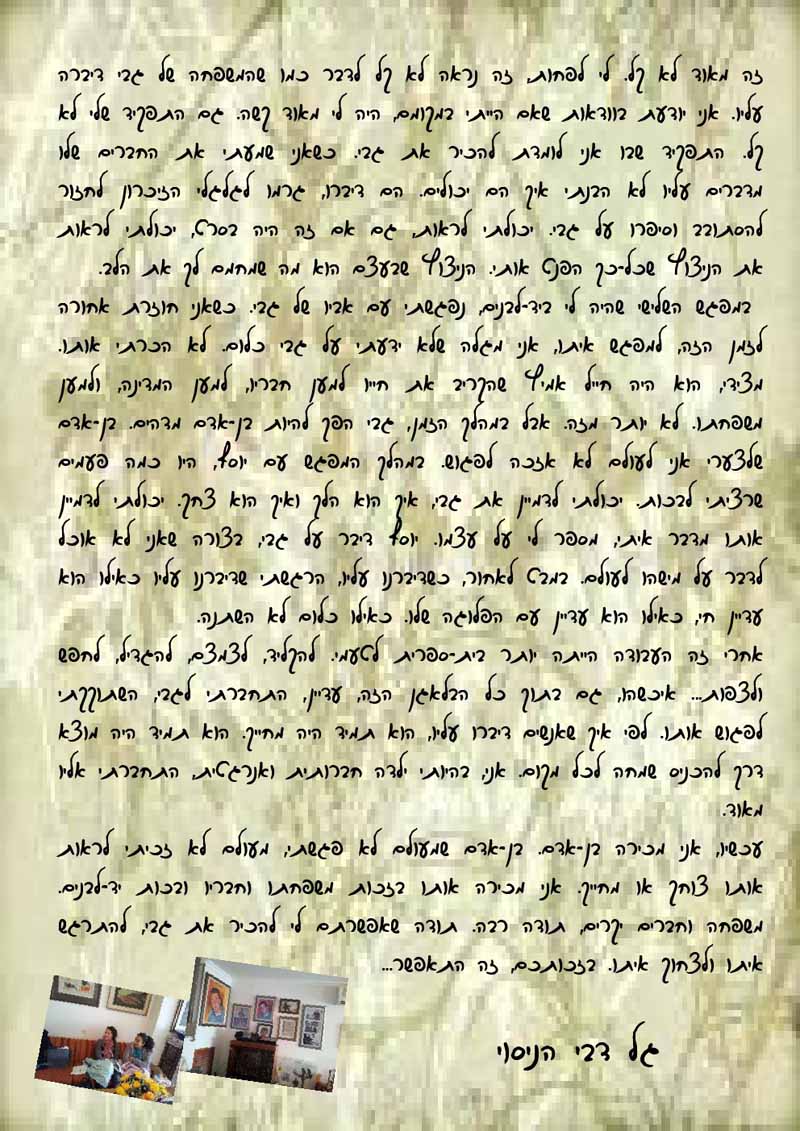 זה מאוד לא קל. לי לפחות, זה נראה לא קל לדבר כמו שהמשפחה של גבי דיברה
עליו. אני יודעת בוודאות שאם הייתי במקומם, היה לי מאוד קשה. גם התפקיד שלי לא
קל. התפקיד שבו אני לומדת להכיר את גבי. כשאני שמעתי את החברים שלו
מדברים עליו לא הבנתי איך הם יכולים. הם דיברו, גרמו לגלגלי הזיכרון לחזור
להסתובב וסיפרו על גבי. יכולתי לראות, גם אם זה היה בסרט, יכולתי לראות
את הניצוץ שכל-כך הפנט אותי. הניצוץ שבעצם הוא מה שמחמם לך את הלב.
במפגש השלישי שהיה לי ביד-לבנים, נפגשתי עם אביו של גבי. כשאני חוזרת אחורה
לזמן הזה, למפגש איתו, אני מגלה שלא ידעתי על גבי כלום. לא הכרתי אותו.
מצידי, הוא היה חייל אמיץ שהקריב את חייו למען חבריו, למען המדינה, ולמען
משפחתו. לא יותר מזה. אבל במהלך הזמן, גבי הפך להיות בן-אדם מדהים. בן-אדם
שלצערי אני לעולם לא אזכה לפגוש. במהלך המפגש עם יוסף, היו כמה פעמים
שרציתי לבכות. יכולתי לדמיין את גבי, איך הוא הלך ואיך הוא צחק. יכולתי לדמיין
אותו מדבר איתי, מספר לי על עצמו. יוסף דיבר על גבי, בצורה שאני לא אוכל
לדבר על מישהו לעולם. במבט לאחור, כשדיברנו עליו, הרגשתי שדיברנו עליו כאילו הוא
עדיין חי, כאילו הוא עדיין עם הפלוגה שלו. כאילו כלום לא השתנה.
אחרי זה העבודה הייתה יותר בית-ספרית לטעמי. להקליד, לצמצם, להגדיל, לחפש
ולצפות... איכשהו, גם בתוך כל הבלאגן הזה, עדיין, התחברתי לגבי, השתוקקתי
לפגוש אותו. לפי איך שאנשים דיברו עליו, הוא תמיד היה מחייך. הוא תמיד היה מוצא
דרך להכניס שמחה לכל מקום. אני, בהיותי ילדה חברותית ואנרגטית, התחברתי אליו
מאוד.
עכשיו, אני מכירה בן-אדם. בן-אדם שמעולם לא פגשתי, מעולם לא זכיתי לראות
אותו צוחק או מחייך. אני מכירה אותו בזכות משפחתו וחבריו ובכות יד-לבנים.
משפחה וחברים יקרים, תודה רבה. תודה שאפשרתם לי להכיר את גבי, להתרגש
איתו ולצחוק איתו. בזכותכם, זה התאפשר...
גל דבי הניסוי